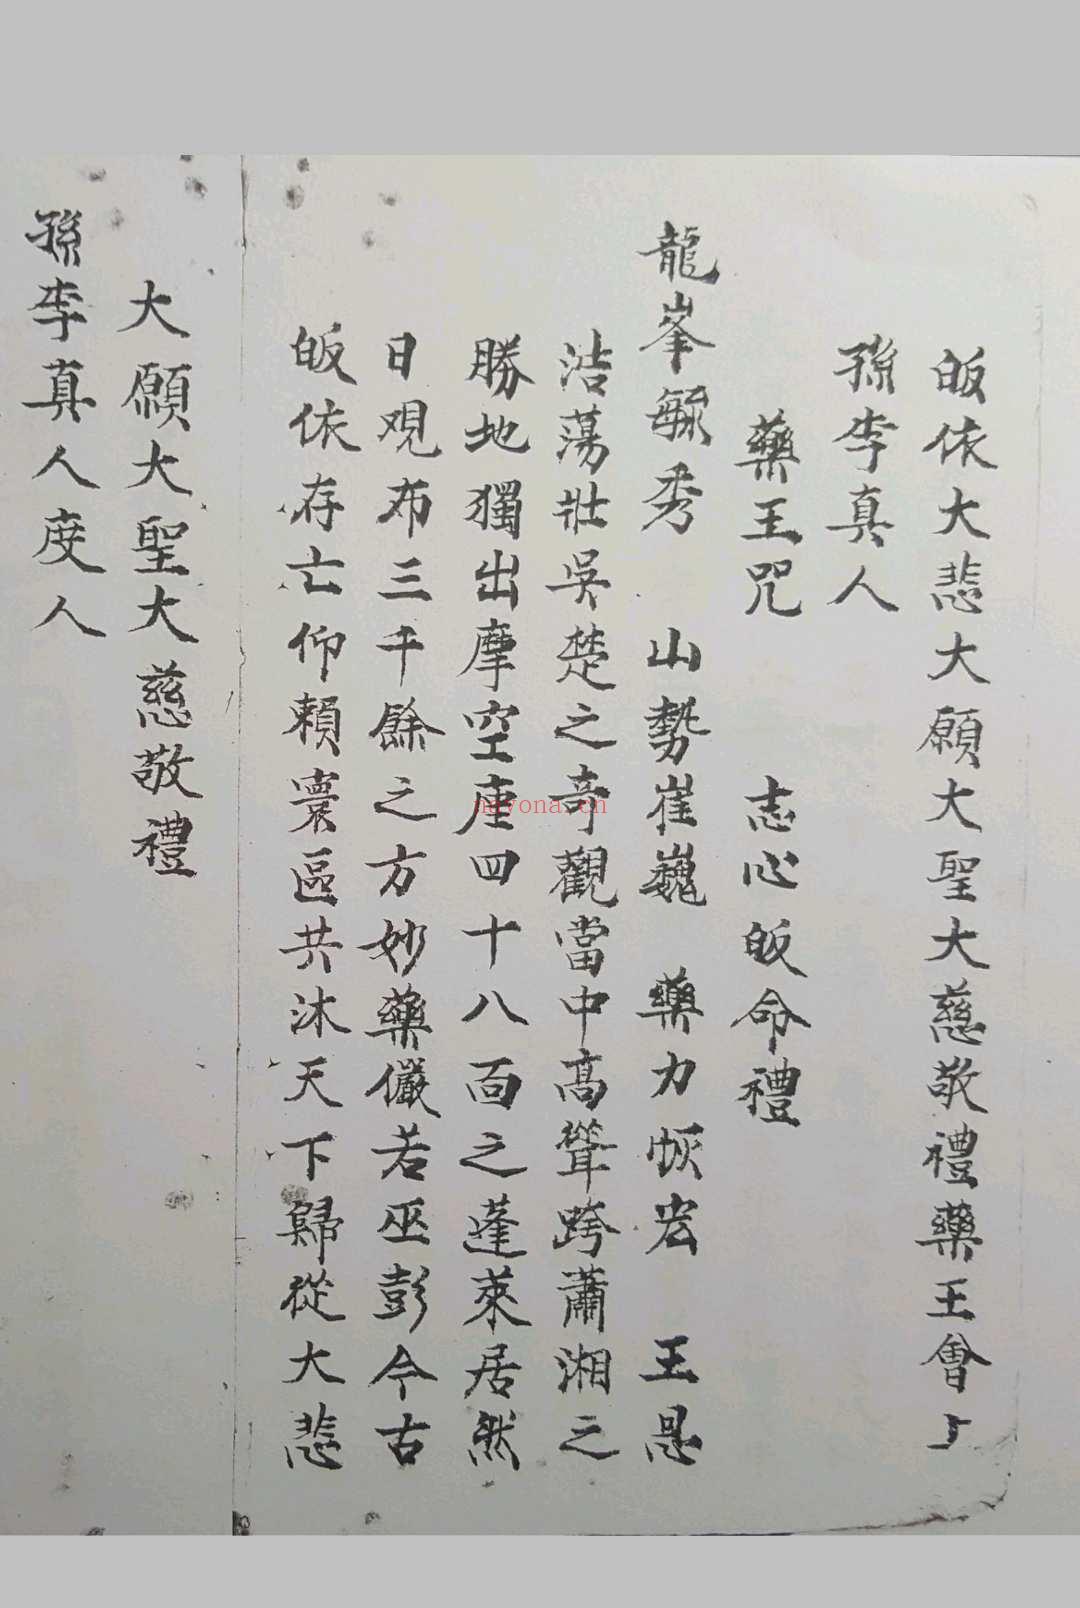 皈依大悲大願大聖大慈敬禮藥王會上
孫李真人
藥王咒　志心皈命禮
龍峯毓秀　山勢崔巍　藥力恢宏　王恩
浩蕩壯吳楚之奇觀當中高聳跨蕭湘之
勝地獨出摩空座四十八面之蓬萊居然
日观布三千餘之方妙藥儼若巫彭今古
皈依存亡仰賴寰區共沐天下歸從大悲
大願大聖大慈敬禮
孫李真人度人
nayona.cn